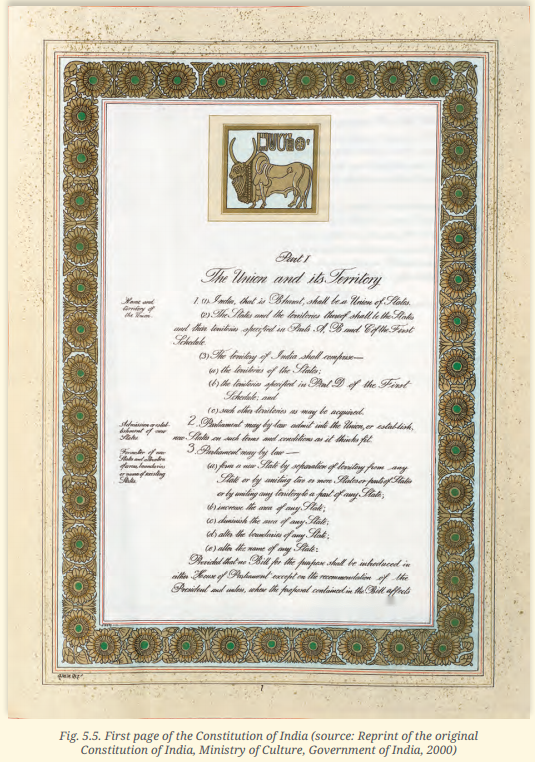 Part I
The Union and its Territory
Name and
territory of
the Union.
1. (1) India, that is Bharat, shall be a Union of States.
(2) The States and the territories thereof shall be the States
and their territories specified in Parts A, B and C of the First
Schedule.
(3) The territory of India shall comprise—
(a) the territories of the States;
(b) the territories specified in Part D of the First
Schedule; and
(c) such other territories as may be acquired.
Admission or estab-
lishment of new
States
2. Parliament may by law admit into the Union, or establish,
new States on such terms and conditions as it thinks fit.
Formation of new
States and alteration
of areas, boundaries
or names of existing
States.
3. Parliament may by law—
(a) form a new State by separation of territory from any
State or by uniting two or more States or parts of States
or by uniting any territory to a part of any State;
(b) increase the area of any State;
(c) diminish the area of any State;
(d) alter the boundaries of any State;
(e) alter the name of any State:
Provided that no Bill for the purpose shall be introduced in
either House of Parliament except on the recommendation of the
President and unless, where the proposal contained in the Bill affects
1
Fig. 5.5. First page of the Constitution of India (source: Reprint of the original
Constitution of India, Ministry of Culture, Government of India, 2000)